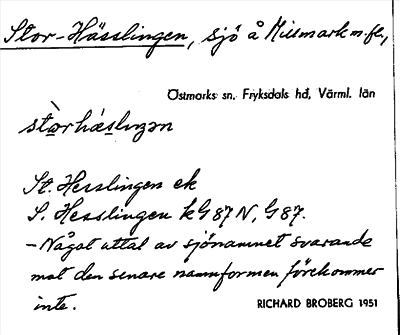 Stor-Hässlingen, sjö å Millmark m.fl.,
Östmarks sn, Fryksdals hd, Värml. län
stòrhǽslıŋən
St. Hesslingen ek
S. Hesslingen k G 87 N, G 87.
- Något uttal av sjönamnet svarande
mot den senare namnformen förekommer
inte.
RICHARD BROBERG 1951